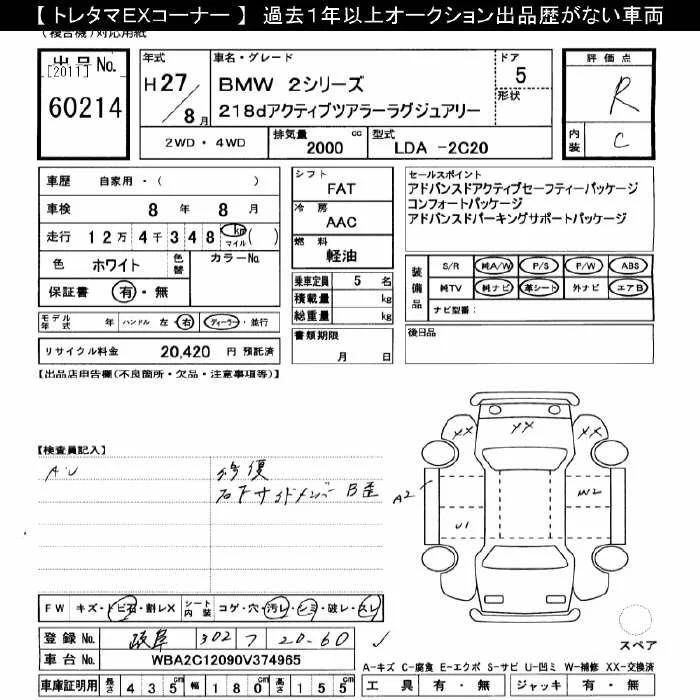 【 トレタマEXコーナー 】 過去１年以上オークション出品歴がない車両
(複合機)対応用紙
出品No.
[2011]
60214
年式
H27/8月
車名・グレード
BMW 2シリーズ
218dアクティブツアラーラグジュアリー
ドア
5
形状
評価点
R
内装
C
2WD・4WD
排気量
2000
cc
型式
LDA -2C20
車歴 自家用・( )
車検 8年 8月
走行 12万4千348 km マイル ( )
色 ホワイト 色替 カラーNo.
保証書 有・無
モデル年式 年 ハンドル 左 右 ディーラー・並行
リサイクル料金 20,420 円 預託済
シフト
FAT
冷房
AAC
燃料
軽油
乗車定員 5 名
積載量 kg
総重量 kg
書類期限
月 日
セールスポイント
アドバンスドアクティブセーフティーパッケージ
コンフォートパッケージ
アドバンスドパーキングサポートパッケージ
装備品
S/R 純A/W P/S P/W ABS
純TV 純ナビ 革シート 外ナビ エアB
ナビ型番:
後日品
【出品店申告欄(不良箇所・欠品・注意事項等)】
【検査員記入】
A・U
修復
右下サイドメンバーB歪
XX
XX
XX
A2
W2
U1
FW キズ・トビ石・割レX シート内装 コゲ・穴・汚レ・シミ・破レ・スレ
登録No. 岐阜 302 フ 20-60
車台No. WBA2C12090V374965
車庫証明用 長さ 435cm 幅 180cm 高さ 155cm
スペア
A-キズ C-腐食 E-エクボ S-サビ U-凹ミ W-補修 XX-交換済
工具 有・無 ジャッキ 有・無